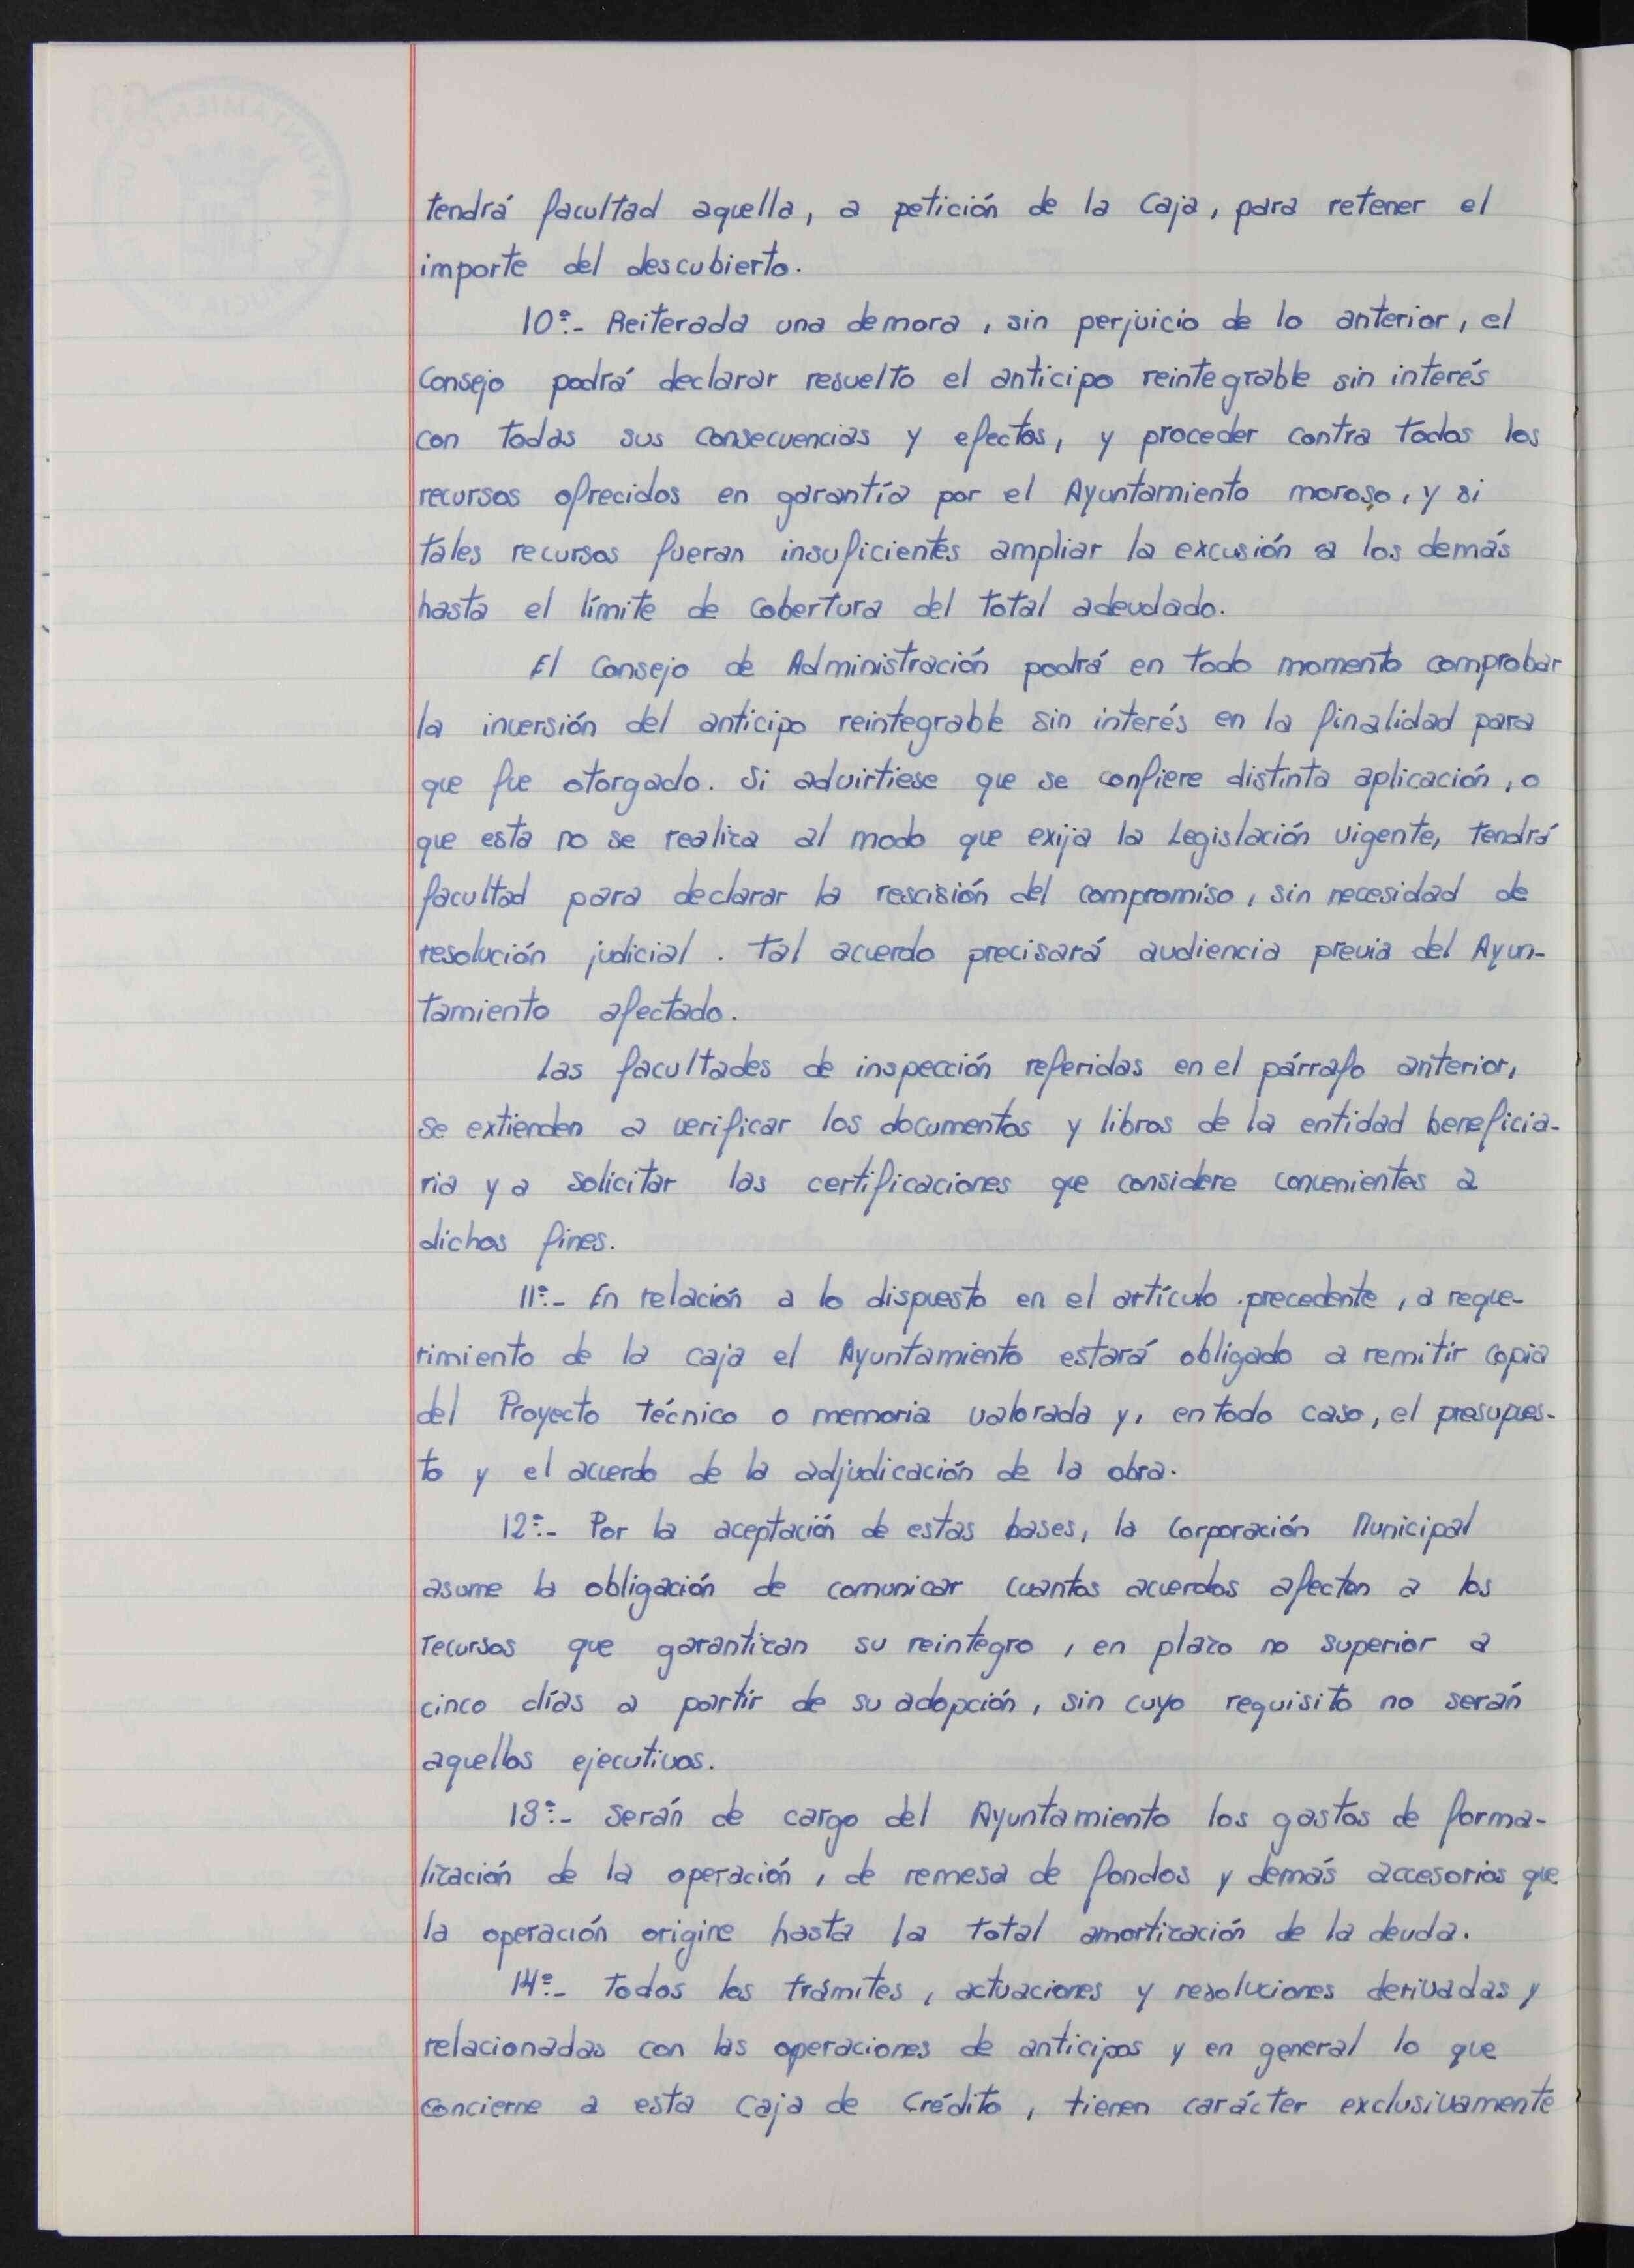 tendrá facultad aquella, a petición de la Caja, para retener el
importe del descubierto.
10º.- Reiterada una demora, sin perjuicio de lo anterior, el
Consejo podrá declarar resuelto el anticipo reintegrable sin interés
con todas sus consecuencias y efectos, y proceder contra todos los
recursos ofrecidos en garantía por el Ayuntamiento moroso, y si
tales recursos fueran insuficientes ampliar la excusión a los demás
hasta el límite de cobertura del total adeudado.
El Consejo de Administración podrá en todo momento comprobar
la inversión del anticipo reintegrable sin interés en la finalidad para
que fue otorgado. Si advirtiese que se confiere distinta aplicación, o
que esta no se realiza al modo que exija la Legislación vigente, tendrá
facultad para declarar la rescisión del compromiso, sin necesidad de
resolución judicial. Tal acuerdo precisará audiencia previa del Ayun-
tamiento afectado.
Las facultades de inspección referidas en el párrafo anterior,
se extienden a verificar los documentos y libros de la entidad beneficia-
ria y a solicitar las certificaciones que considere convenientes a
dichos fines.
11º.- En relación a lo dispuesto en el artículo precedente, a reque-
rimiento de la caja el Ayuntamiento estará obligado a remitir copia
del Proyecto técnico o memoria valorada y, en todo caso, el presupues-
to y el acuerdo de la adjudicación de la obra.
12º.- Por la aceptación de estas bases, la Corporación Municipal
asume la obligación de comunicar cuantos acuerdos afecten a los
recursos que garantizan su reintegro, en plazo no superior a
cinco días a partir de su adopción, sin cuyo requisito no serán
aquellos ejecutivos.
13º.- Serán de cargo del Ayuntamiento los gastos de forma-
lización de la operación, de remesa de fondos y demás accesorios que
la operación origine hasta la total amortización de la deuda.
14º.- Todos los trámites, actuaciones y resoluciones derivadas y
relacionadas con las operaciones de anticipos y en general lo que
concierne a esta Caja de Crédito, tienen carácter exclusivamente